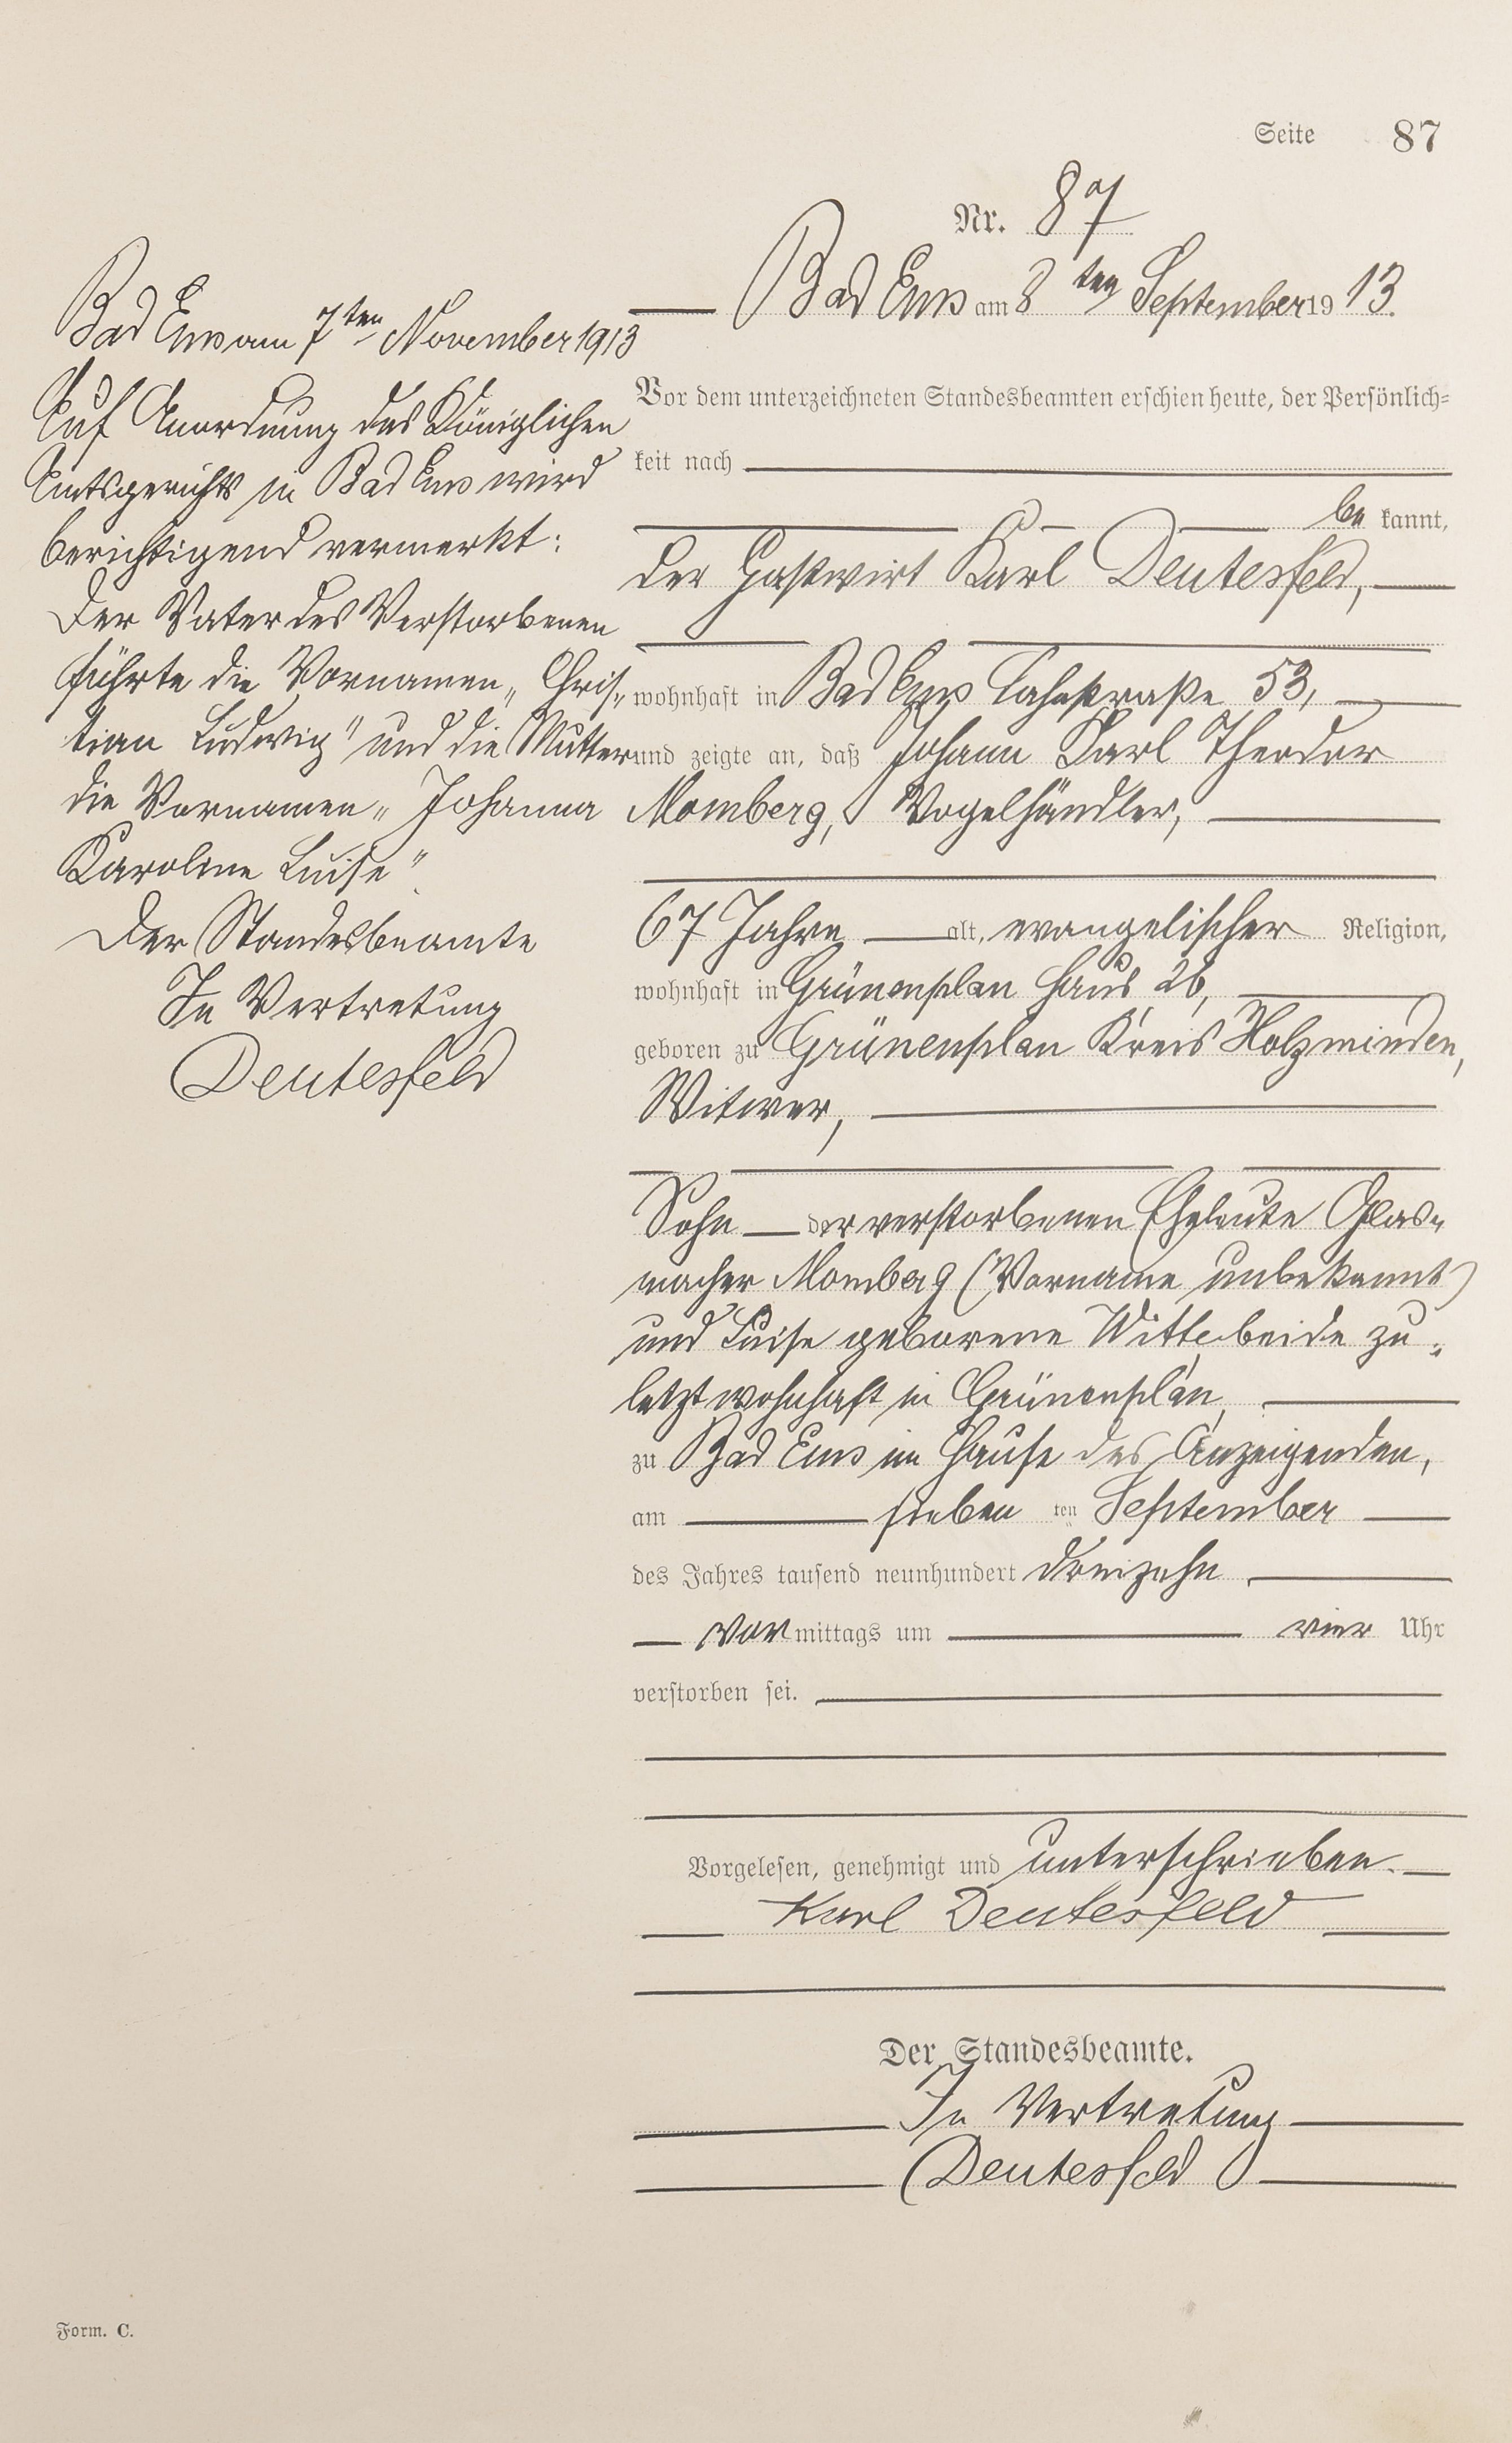 Seite 87
Nr. 87
Bad Ems am 8ten September 1913.
Vor dem unterzeichneten Standesbeamten erschien heute, der Persönlich=
keit nach
be kannt,
der Gastwirt Karl Deutesfeld,
wohnhaft in Bad Ems Lahnstraße 53,
und zeigte an, daß Johann Karl Theodor
Momberg, Vogelhändler,
67 Jahre alt, evangelischer Religion,
wohnhaft in Grünenplan Haus 26,
geboren zu Grünenplan Kreis Holzminden,
Witwer,
Sohn der verstorbenen Eheleute Glas=
macher Momberg (Vorname unbekannt)
und Luise geborene Witte beide zu=
letzt wohnhaft in Grünenplan,
zu Bad Ems im Hause des Anzeigenden,
am sieben ten September
des Jahres tausend neunhundert dreizehn
vor mittags um vier Uhr
verstorben sei.
Vorgelesen, genehmigt und unterschrieben.
Karl Deutesfeld
Der Standesbeamte.
In Vertretung
Deutesfeld
Bad Ems am 7ten November 1913
Auf Anordnung des Königlichen
Amtsgerichts in Bad Ems wird
berichtigend vermerkt:
Der Vater des Verstorbenen
führte die Vornamen „Chris=
tian Ludwig" und die Mutter
die Vornamen „Johanna
Karoline Luise"
Der Standesbeamte
In Vertretung
Deutesfeld
Form. C.